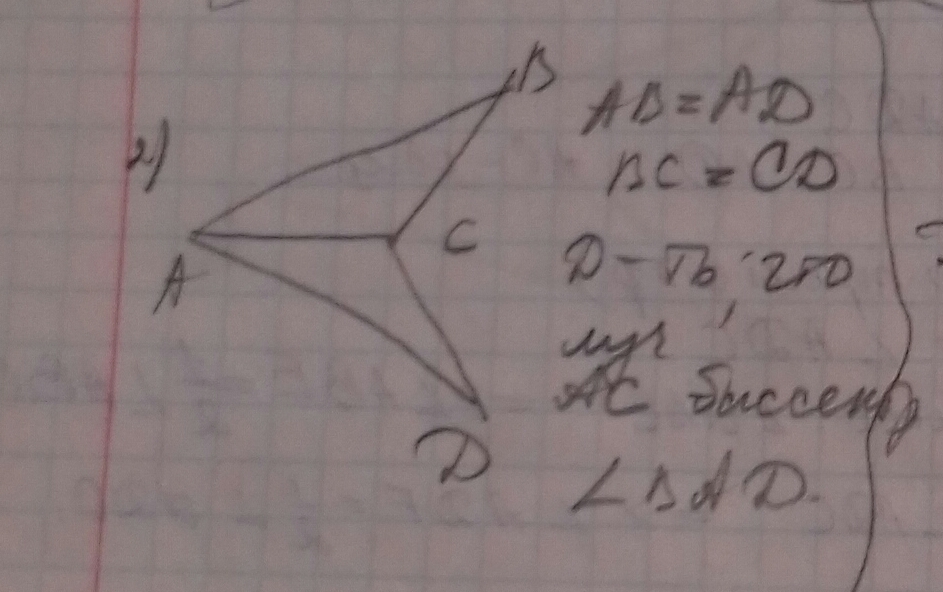 2)
B
AB = AD
BC = CD
C
A
Д-ть, что
луч
AC биссектр
D
∠BAD.